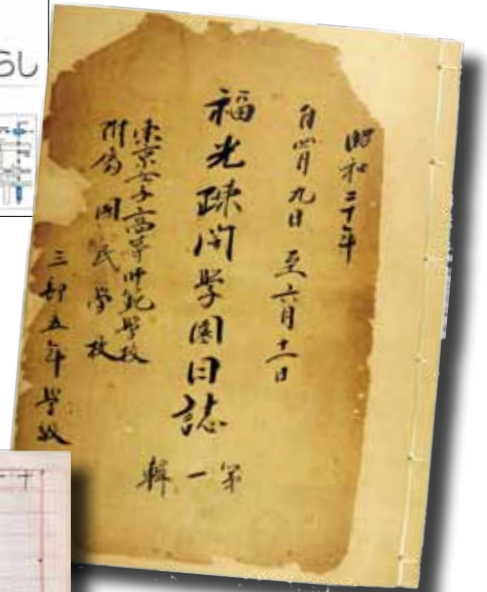 昭和二十年
自四月九日 至六月十二日
福光疎開学園日誌
第一輯
東京女子高等師範学校
附属国民学校
三部五年学級
らし